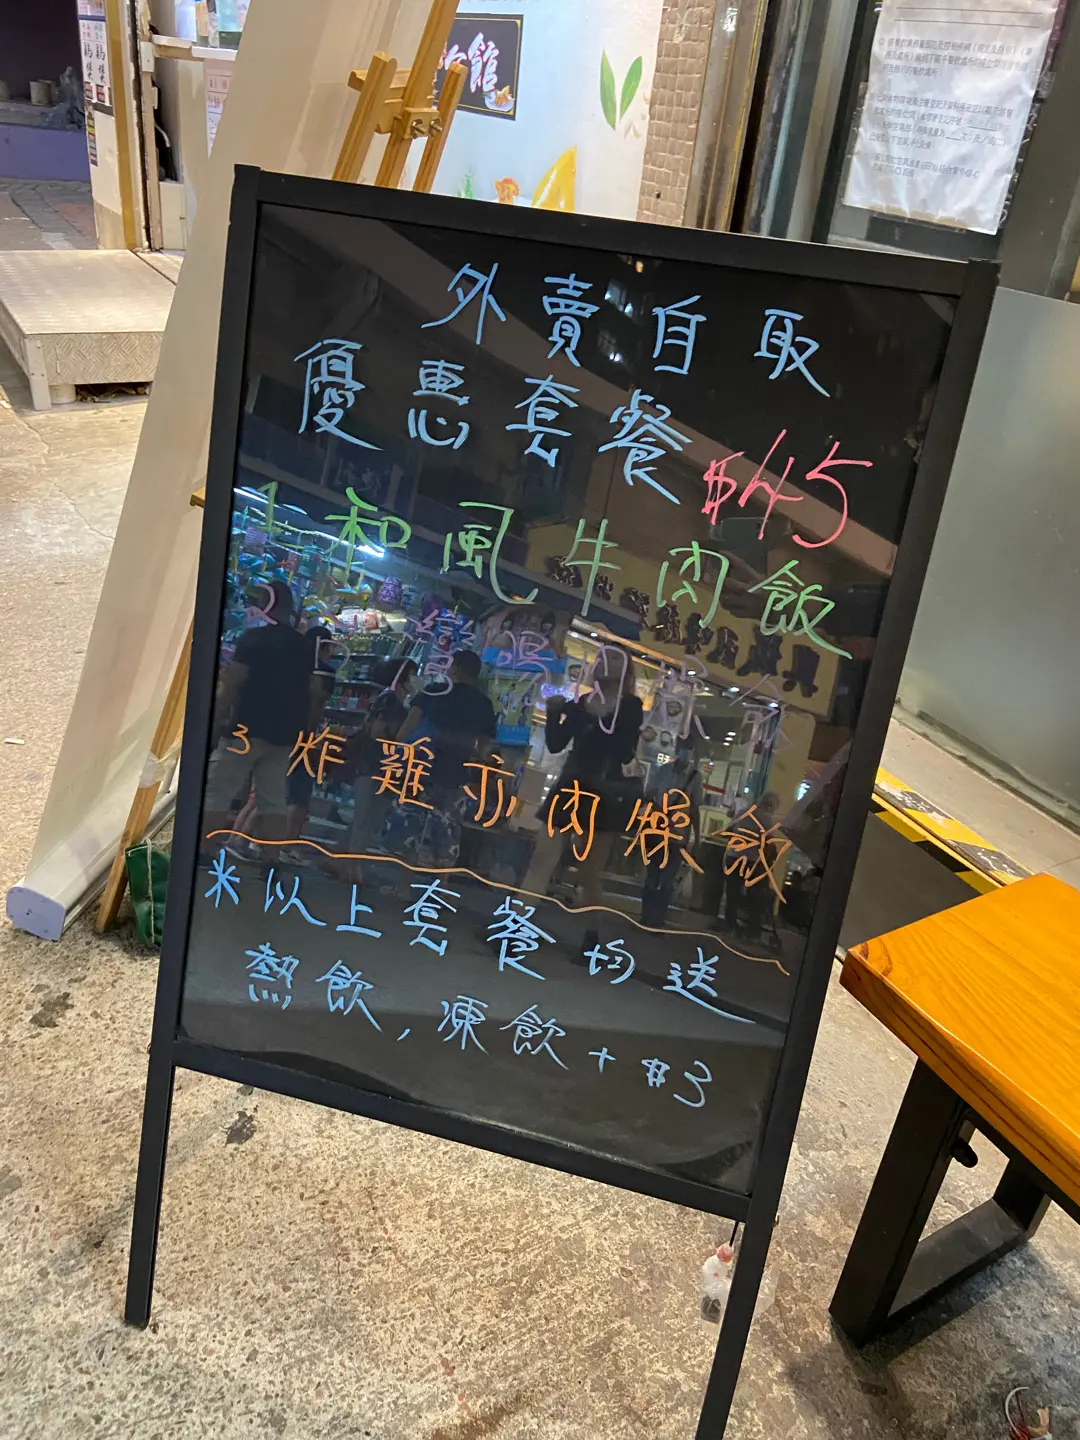 外賣自取
優惠套餐 $45
1 和風牛肉飯
2 台灣腸肉燥飯
3 炸雞亦肉燥飯
※以上套餐均送
熱飲,凍飲+$3
館